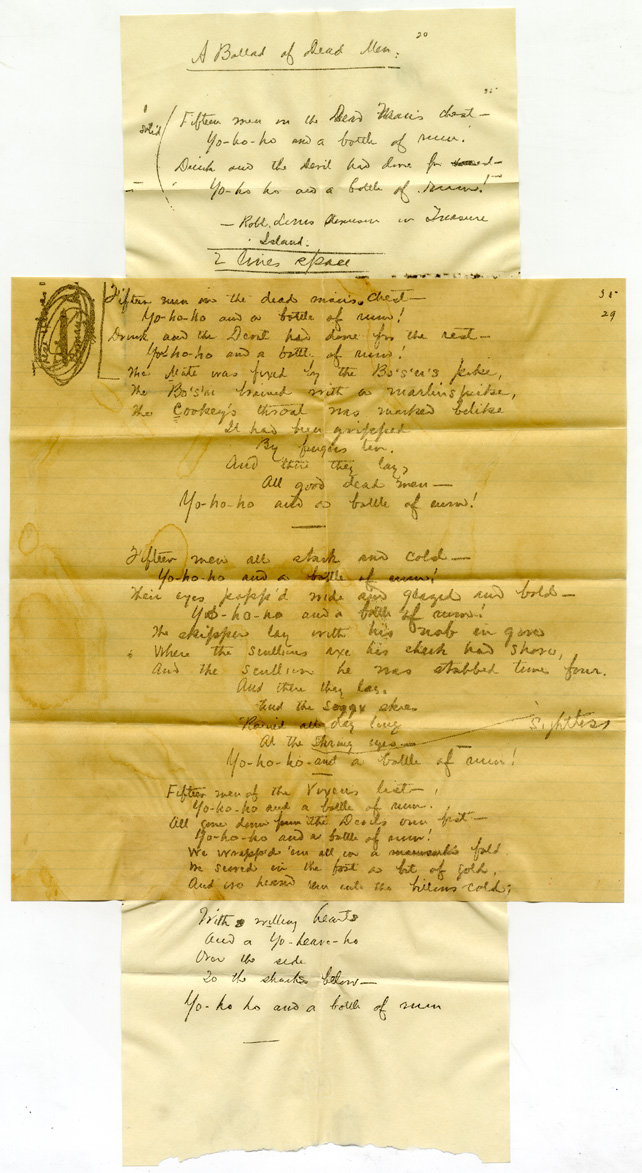 A Ballad of Dead Men. 20
35
solid
Fifteen men on the Dead Man's chest—
Yo-ho-ho and a bottle of rum!
Drink and the Devil had done for
Yo-ho ho and a bottle of rum!
— Robt. Louis Stevenson in Treasure
Island.
2 lines space
35
29
Fifteen men on the dead man's chest—
Yo-ho-ho and a bottle of rum!
Drink and the Devil had done for the rest—
Yo-ho-ho and a bottle of rum!
The Mate was fixed by the Bo's'n's pike,
The Bo's'n brained with a marlinspike,
The Cookey's throat was marked belike
It had been gripped
By fingers ten.
And there they lay,
All good dead men—
Yo-ho-ho and a bottle of rum!
Fifteen men all stark and cold—
Yo-ho-ho and a bottle of rum!
Their eyes popp'd wide and glazed and bold—
Yo-ho-ho and a bottle of rum!
The skipper lay with his nob in gore
Where the scullion's axe his cheek had shore,
And the scullion he was stabbed times four.
And there they lay.
And the soggy skies
Rained all day long sightless
At the staring eyes—
Yo-ho-ho-and a bottle of rum!
Fifteen men of the Vixen's list—
Yo-ho-ho and a bottle of rum.
All gone down from the Devil's own fist—
Yo-ho-ho and a bottle of rum!
We wrapp'd 'em all in a fold
We sewed in the foot a bit of gold,
And we heaved 'em into the billows cold;
With willing hearts
And a Yo-heave-ho
Over the side
To the sharks below—
Yo-ho ho and a bottle of rum